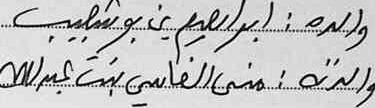 والده : ابراهيم بن بوشعيب
والدته : منى الفاسي بنت عبد الله